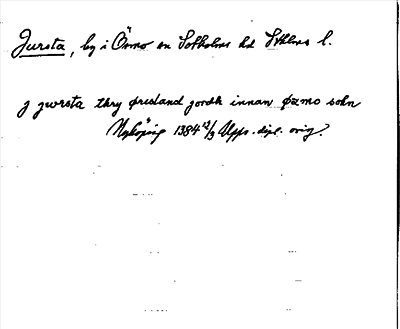 Jursta, by i Ösmo sn Sotholms hd Sthlms l.
j jwrsta thry øresland jordh innan øzmo sokn
Nyköping 1384 12/3 Upps. dipl. orig.